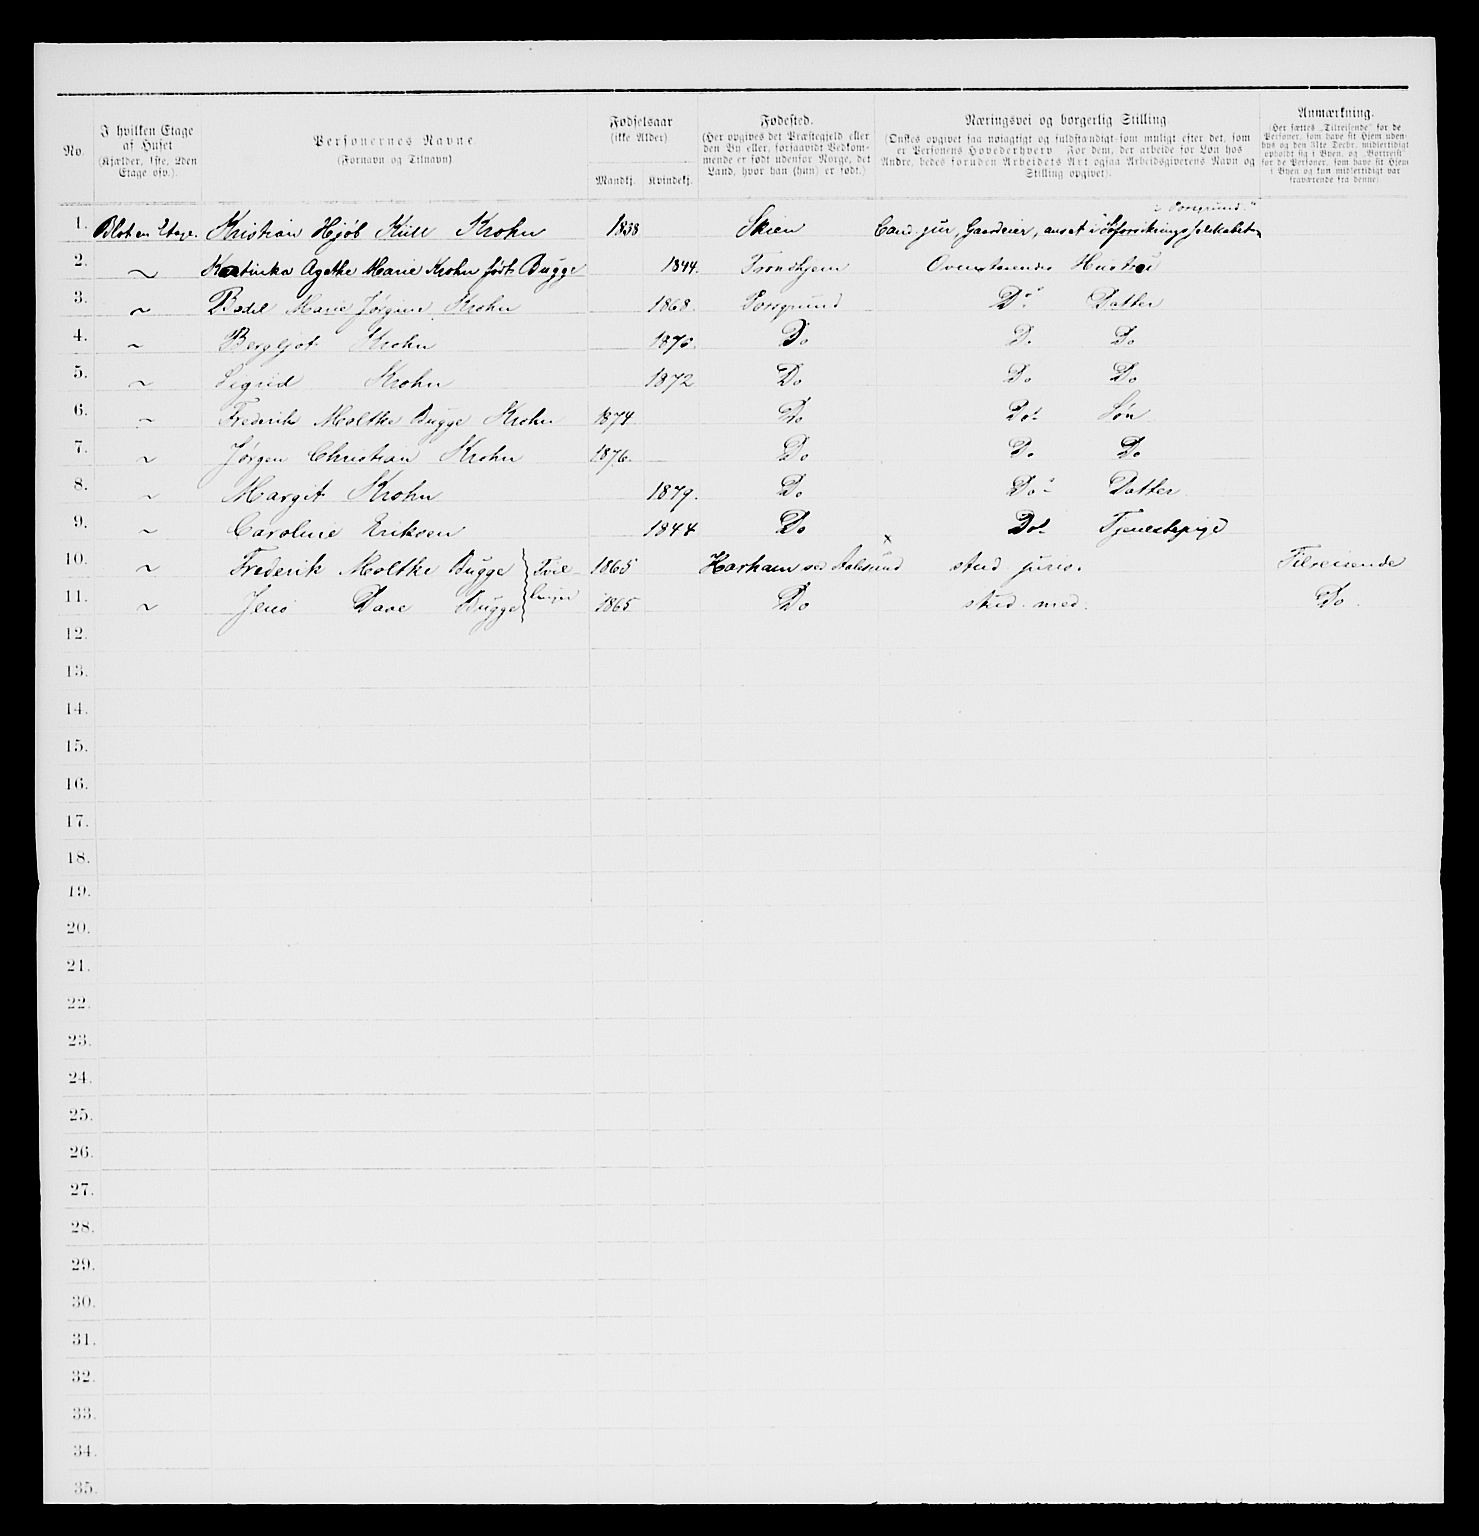 No.
I hvilken Etage
af Huset
(Kjælder, 1ste, 2den
Etage osv.).
Personernes Navne
(Fornavn og Tilnavn)
Fødselsaar
(ikke Alder)
Mandkj. Kvindekj.
Fødested.
(Her opgives det Præstegjeld eller
den By eller, forsaavidt Vedkom-
mende er født udenfor Norge, det
Land, hvor han (hun) er født.)
Næringsvei og borgerlig Stilling
(Ønstes opgivet saa nøiagtigt og fuldstændigt som muligt efter det, som
er Personens Hovederhverv For dem, der arbeide for Løn hos
Andre, bedes foruden Arbeidets Art ogsaa Arbeidsgiverens Navn og
Stilling opgivet).
Anmærkning.
(Her sættes „Tilreisende" for de
Personer, som have sit Hjem uden-
bys og den 31te Decbr. midlertidigt
opholdt sig i Byen, og „Bortreist"
for de Personer, som have sit Hjem
i Byen og kun midlertidigt var
fraværende fra denne).
„Porsgrund"
1. Blot en Etage. Kristian Hjøb Krohn 1838 Skien Cand. jur, Gaardeier, ansat i Søforsikringsselskabet
2. ~ Agethe Marie Krohn født Bugge 1844. Trondhjem Ovenstaaendes Hustru
3. ~ Bodil Marie Jørgine Krohn 1868 Porsgrund Do Datter
4. ~ Bergljot Krohn 1870. Do Do Do
5. ~ Sigrid Krohn 1872 Do Do Do
6. ~ Frederik Moltke Bugge Krohn 1874. Do Do Søn
7. ~ Jørgen Christian Krohn 1876. Do Do Do
8. ~ Margit Krohn 1879. Do Do Datter
9. ~ Caroline Eriksen 1844 Do Do Tjenestepige
10. ~ Frederik Moltke Bugge } Tvil- 1865 Harham ved Aalesund x stud juris. Tilreisende
11. ~ Jens Dave Bugge } linger 1865 Do stud. med. Do.
12.
13.
14.
15.
16.
17.
18.
19.
20.
21.
22.
23.
24.
25.
26.
27.
28.
29.
30.
31.
32.
33.
34.
35.